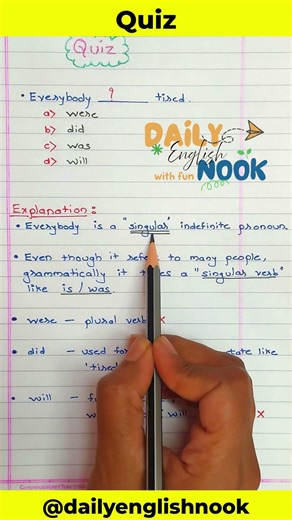 Quiz
Quiz
• Everybody ? tired.
a> were
b> did
c> was
d> will
DAiLY
English
with fun NOOK
Explanation :
• Everybody is a "singular" indefinite pronoun.
• Even though it to many people,
grammatically it a "singular verb"
like is / was.
• were – plural verb x
• did – used like
• will – x
@dailyenglishnook